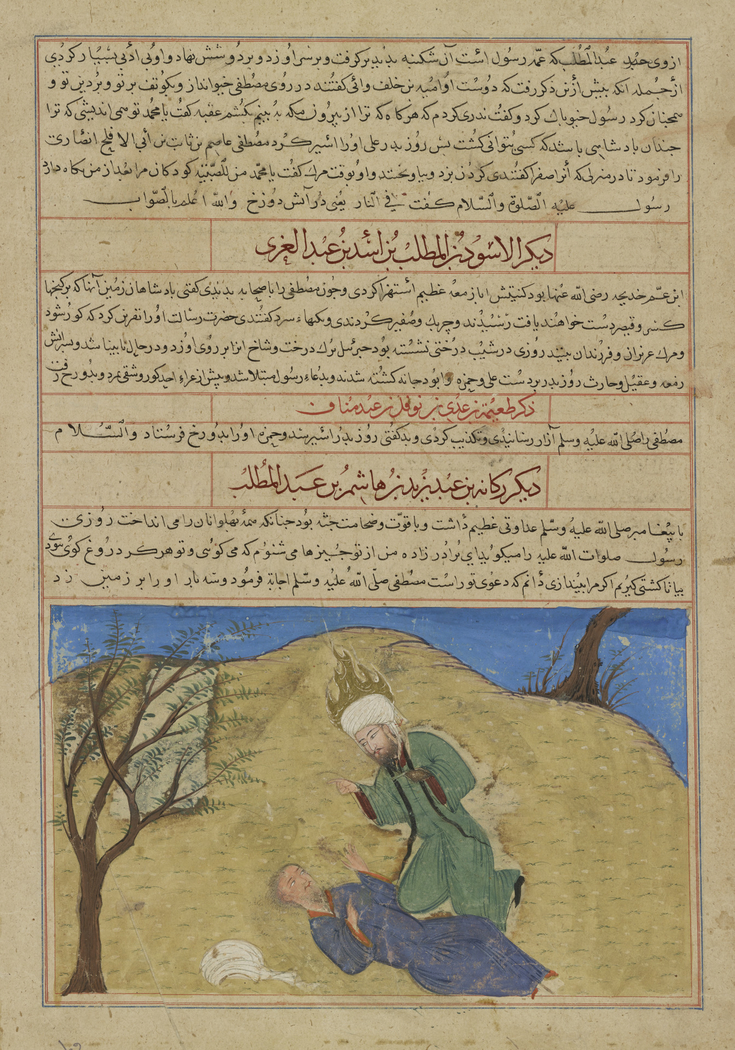 از وی حمید عبدالمطلب که عمّه رسول است آن شکنبه بدید برگرفت و بر سر او زد و بر دوشش نهاد و او بی ادبی بسیار کردی
از جمله آنکه پیش ازین ذکر رفت که دوست او امیه بن خلف و ابی گفتند در روی مصطفی خیو انداز و بکو تف بر تو و بر دین تو و
همچنان کرد رسول خیو پاک کرد و گفت نذری کردم که هرگاه که ترا از بیرون مکه به بینم بکشم عقبه گفت یا محمد تو می اندیشی که ترا
چندان پادشاهی باشد که کسی بتوانی کشت پس روز بدر علی او را اسیر کرد مصطفی عاصم بن ثابت بن ابی الافلح انصاری
را فرمود تا در منزلی که آنرا صفرا گفتندی گردن بزد و بیاویختند و او بوقت مرگ گفت یا محمد من للصبیة کودکان مرا بعد از من نگاه دارد
رسول علیه الصلوة والسلام گفت فی النار یعنی در آتش دوزخ والله اعلم بالصواب
دیکر الاسود بن المطلب بن اسد بن عبد العزی
ابن عم خدیجه رضی الله عنها بود کنیتش ابا زمعه عظیم استهزا کردی و چون مصطفی را با صحابه بدیدی گفتی پادشاهان زمین آنها که بر گنجها
کسری و قیصر دست خواهند یافت رسیدند و صفیر کردندی و سخنهاء سرد گفتندی حضرت رسالت او را نفرین کرد که کور شود
و مرگ عزیزان و فرزندان بیند روزی در شیب درختی نشسته بود جبرئیل برک درخت و شاخ انرا بر روی او زد و در حال نابینا شد و پسرانش
زمعه و عقیل و حارث روز بدر بر دست علی و حمزه و ابو دجانه کشته شدند و بدعاء رسول مبتلا شد و پیش از غزاء احد کور و شقی بمرد و بدوزخ رفت
ذکر طعیمة بن عدی بن نوفل بن عبد مناف
مصطفی را صلی الله علیه وسلم آزار رسانیدی و تکذیب کردی و بد گفتی روز بدر اسیر شد و حمزه او را بدوزخ فرستاد والسلام
دیکر رکانه بن عبد یزید بن هاشم بن عبد المطلب
با پیغامبر صلی الله علیه وسلم عداوتی عظیم داشت و با قوّت و ضخامت جثه بود چنانکه همه پهلوانان را می انداخت روزی
رسول صلوات الله علیه را میکوید ای برادر زاده من از تو چیزها می شنوم که می کویی و تو هرگز دروغ کوی نبودی
بیا تا کشتی گیریم اگر مرا بیندازی دانم که دعوی تو راست مصطفی صلی الله علیه وسلم اجابة فرمود و سه بار او را بر زمین زد